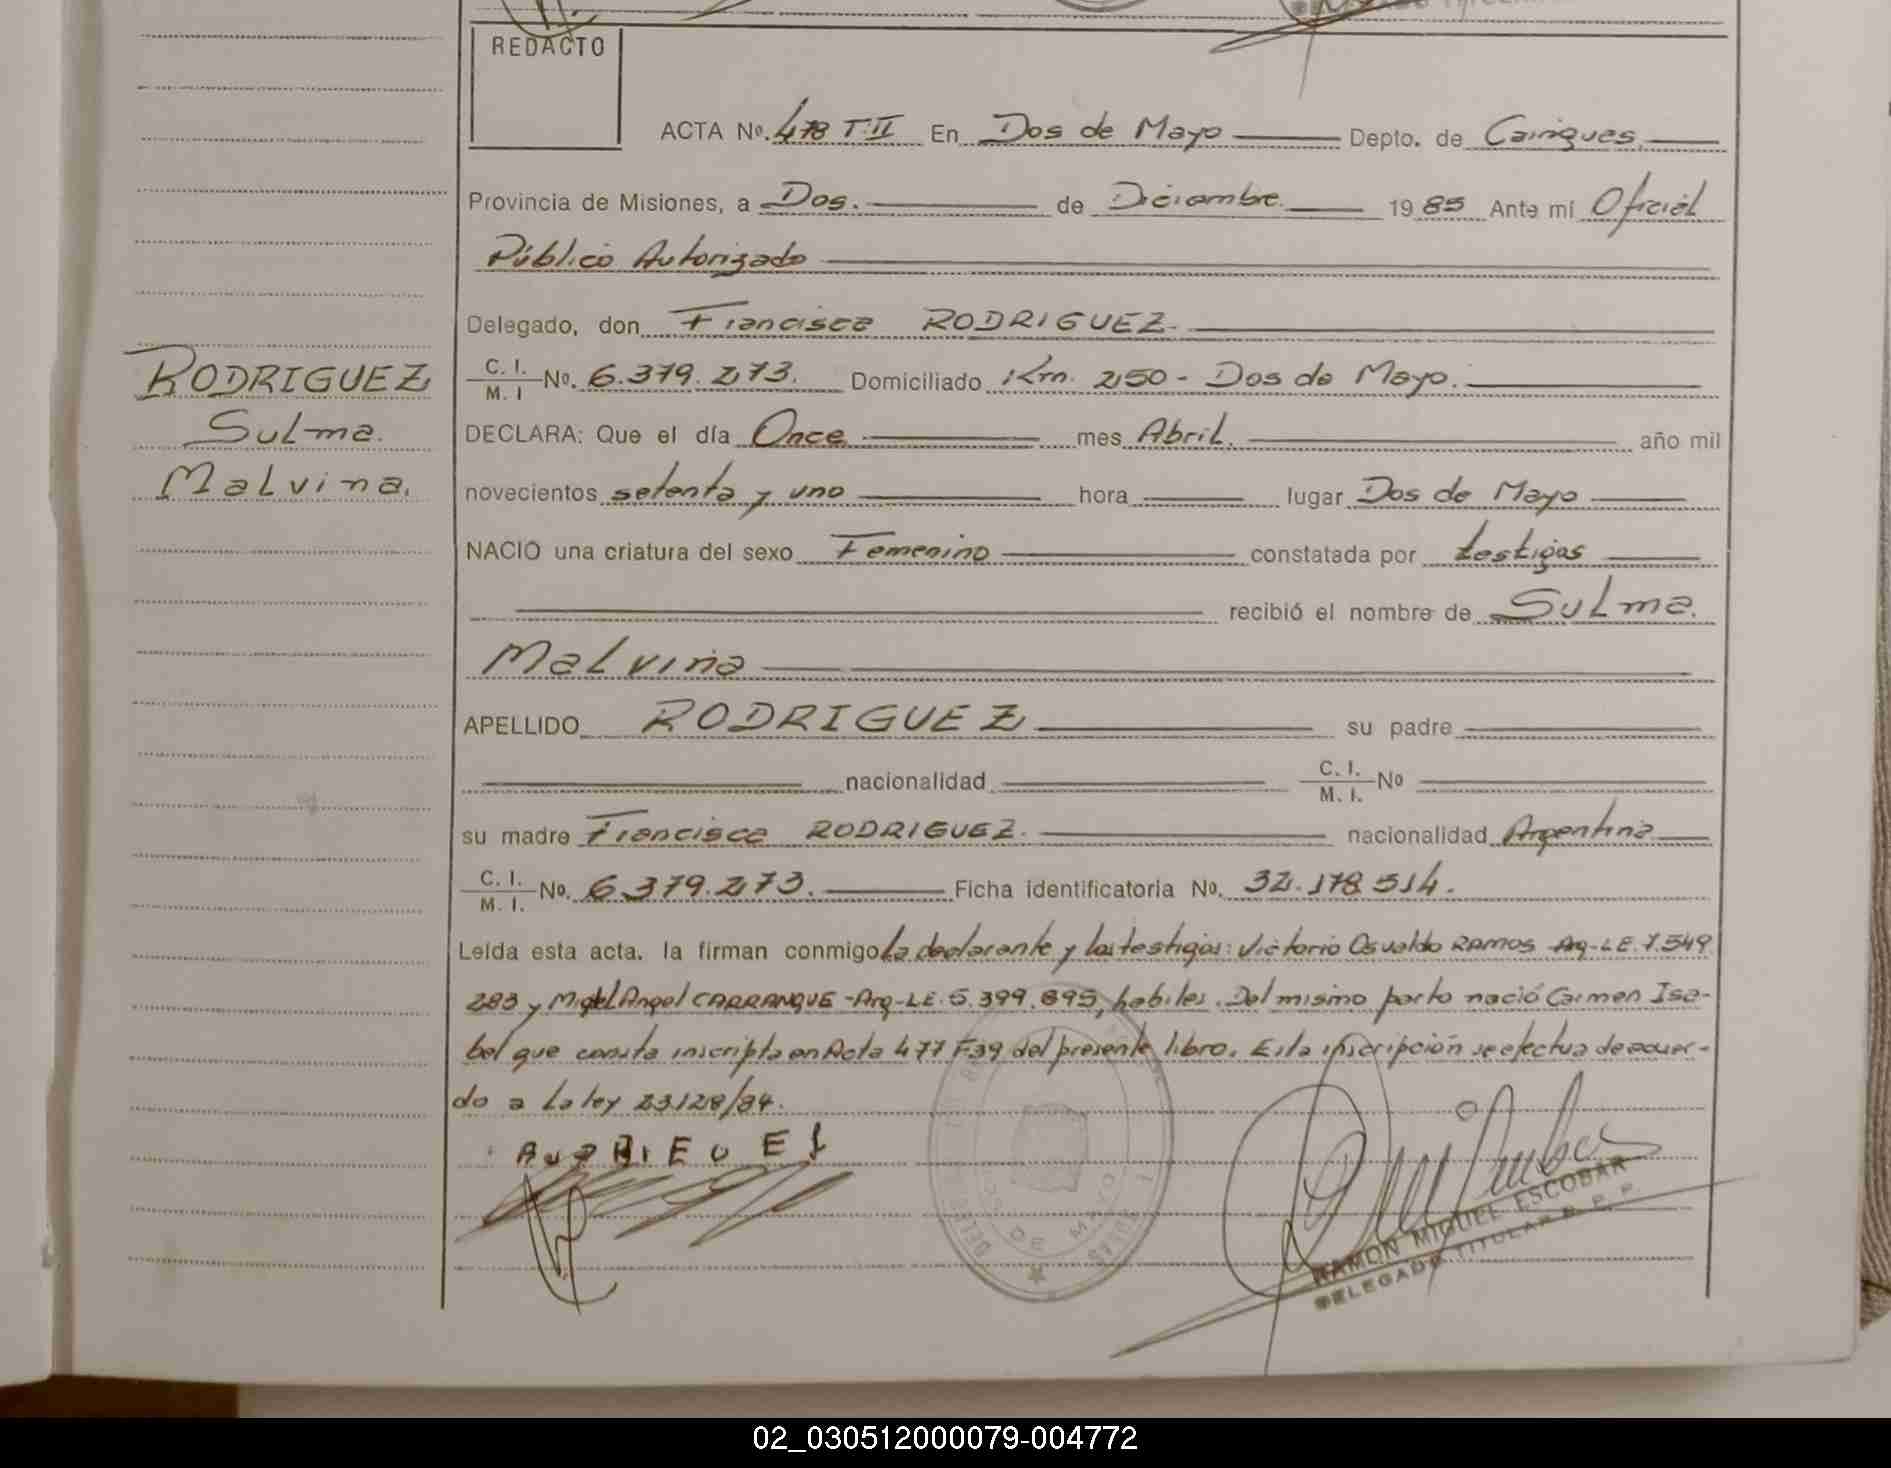 REDACTO
ACTA Nº. 478 T:II En Dos de Mayo Depto. de Cainguas.
Provincia de Misiones, a Dos. de Diciembre. 1985 Ante mí Oficial
Público Autorizado
Delegado, don Francisca RODRIGUEZ.
C. I.
M. I Nº. 6.379.273. Domiciliado Km. 250 - Dos de Mayo.
RODRIGUEZ
Sulma.
Malvina.
DECLARA: Que el día Once mes Abril. año mil
novecientos setenta y uno hora lugar Dos de Mayo
NACIO una criatura del sexo Femenino constatada por testigos
recibió el nombre de Sulma.
Malvina
APELLIDO RODRIGUEZ su padre
nacionalidad C. I.
M. I. Nº
su madre Francisca RODRIGUEZ. nacionalidad Argentina
C. I.
M. I. Nº. 6.379.273. Ficha identificatoria Nº. 32.178.514.
Leída esta acta, la firman conmigo La declarante y los testigos: Victorio Osvaldo RAMOS Arg-LE.7.549
283 y Miguel Angel CARRANQUE -Arg-LE.5.399.895, habiles. Del mismo parto nació Carmen Isa-
bel que consta inscripta en Acta 477 F39 del presente libro. Esta inscripción se efectua de acuer-
do a la ley 23128/84.
DOS DE MAYO
RAMON MIGUEL ESCOBAR
DELEGADO TITULAR R. P. P.
02_030512000079-004772